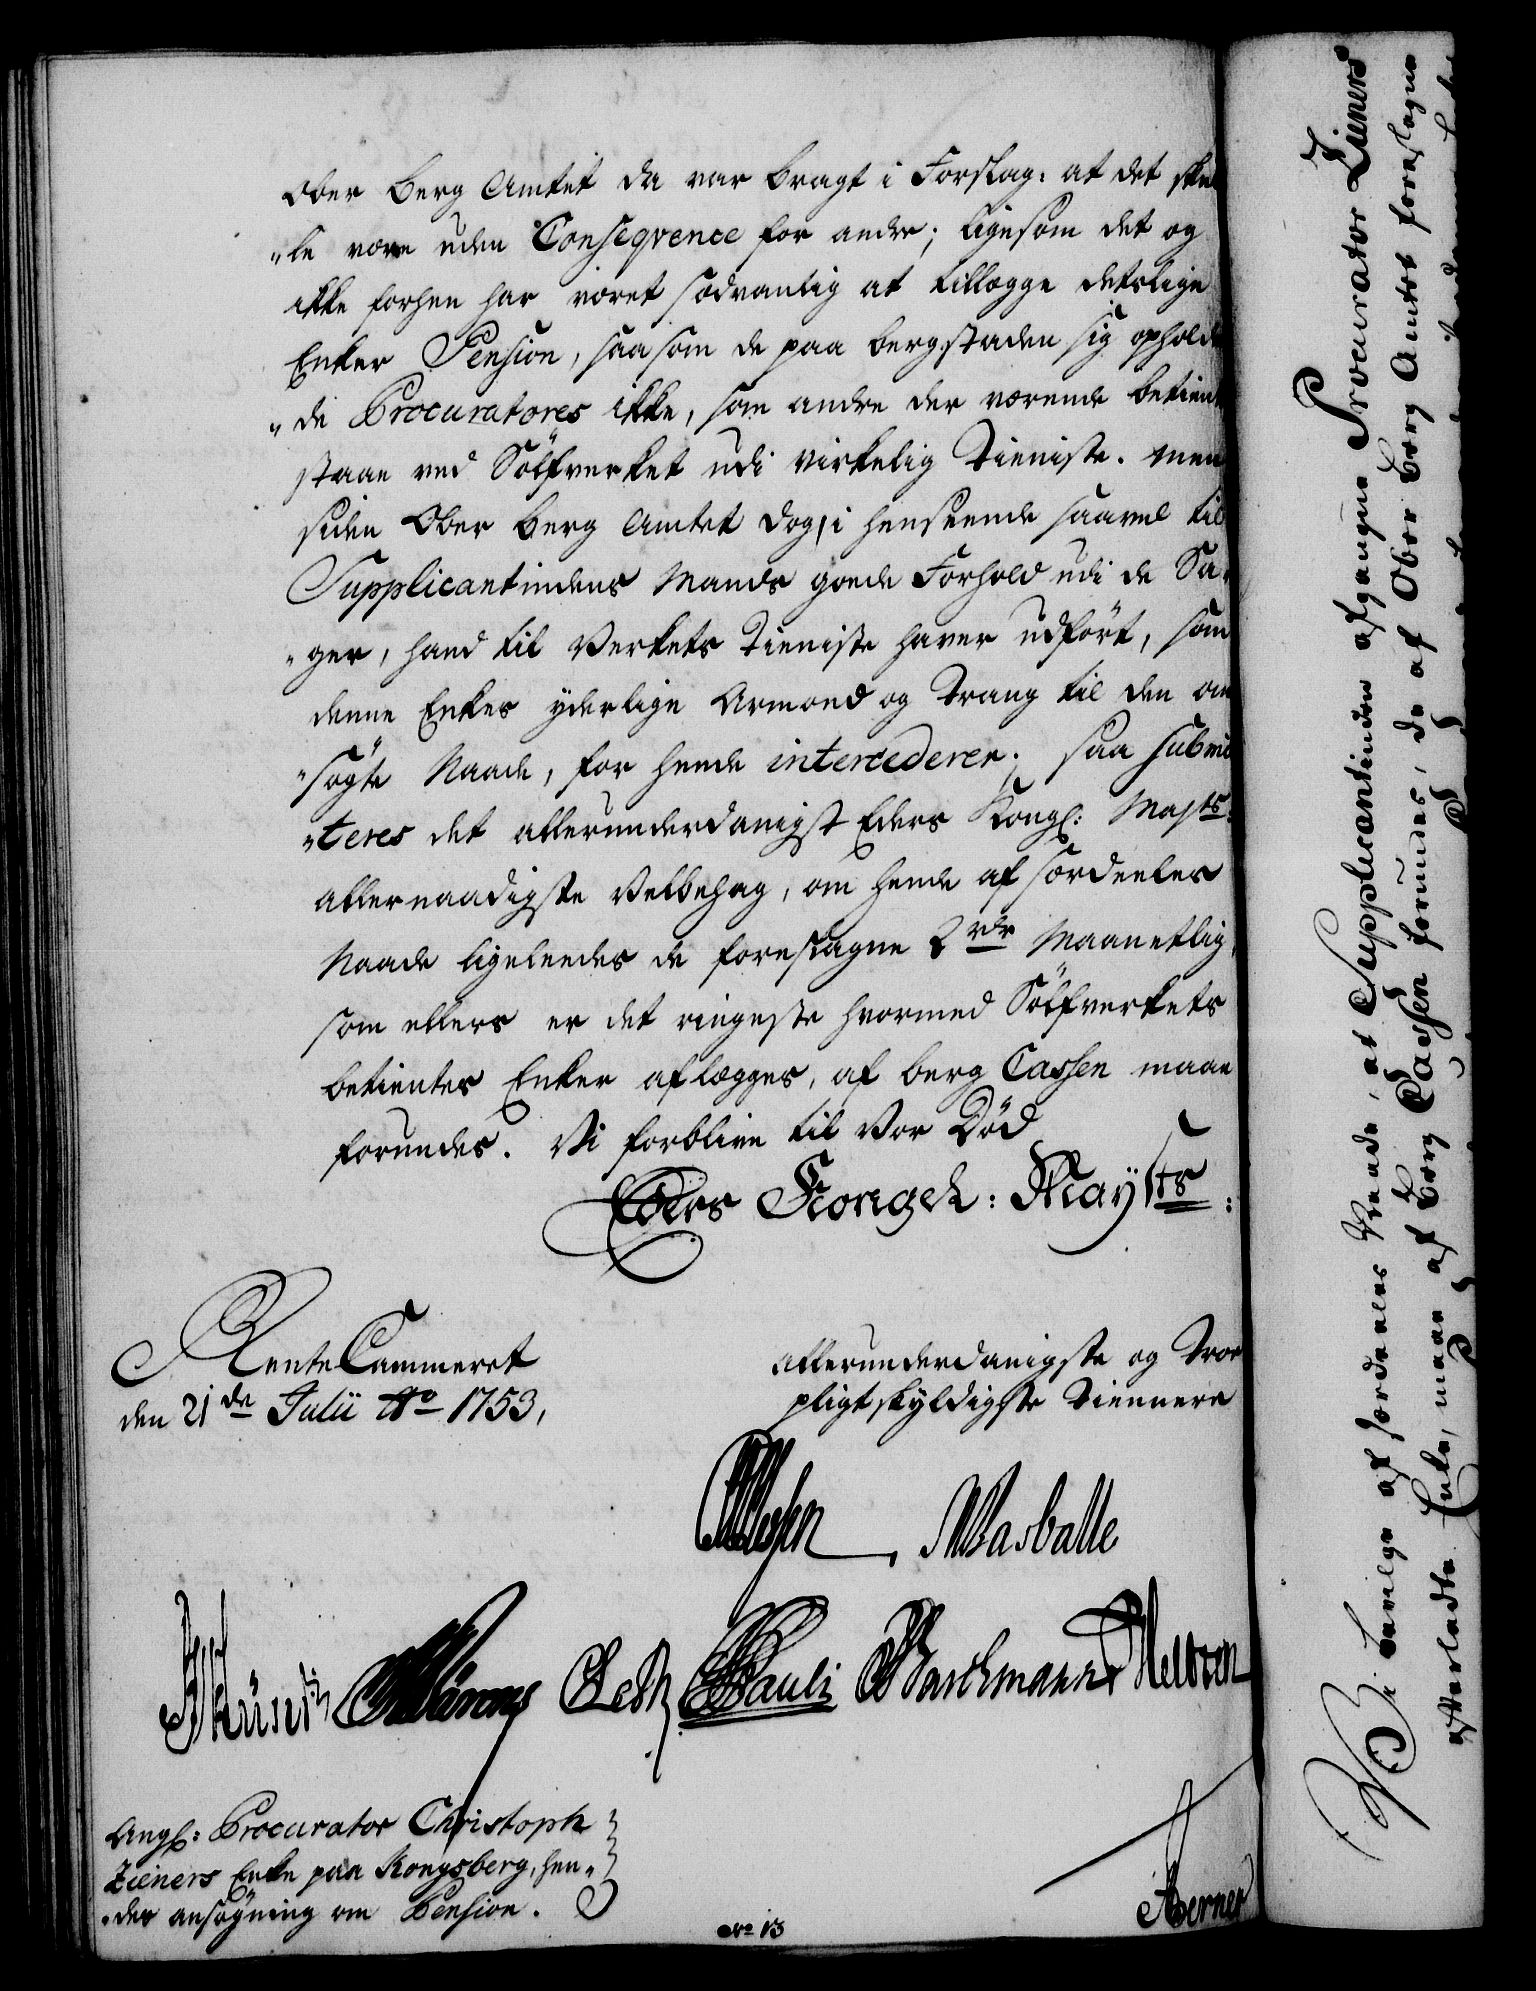 Ober Berg Amtet da var bragt i Forslag: at det skul
"le være uden Conseqvence for andre; ligesom det og
ikke forhen har været sædvanlig at tillægge deslige
Enker Pension, saasom de paa Bergstaden sig ophold
"de Procuratores ikke, som andre der værende betient
staae ved Sölfverket udi virkelig Tieniste. Men
siden Ober Berg Amtet dog, i henseende saavel til
Supplicantindens Mands goede Forhold udi de Sa-
"ger, hand til Verkets Tieniste haver udfört, som
denne Enkes yderlige Armoed og Trang til den an
"søgte Naade, for hende intercederer; saa submit
"teres det allerunderdanigst Eders Kongl: Majts:
allernaadigste Velbehag, om hende af særdeeles
Naade ligeleedes de foreslagne 2 rdr Maanetlig,
som ellers er det ringeste hvormed Sölfverkets
betientes Enker aflægges, af Berg Cassen maae
forundes. Vi forblive til Vor Död
Eders Kongel: Mayts:
Rente Cammeret
den 21de Julii Ao 1753,
allerunderdanigste og Troe
pligtskyldigste Tiennere
Masballe
Pauli
Barchmann
Angl: Procurator Christoph
Zieners Enke paa Kongsberg, hen-
"des ansøgning om Pension.
No 13
Berner
Vi bevilge af særdeeles Naade, at Supplicantinden afgangne Procurator Zieners
efterladte Enke, maae af Berg Cassen forundes, de af Ober Berg Amtet foreslagne